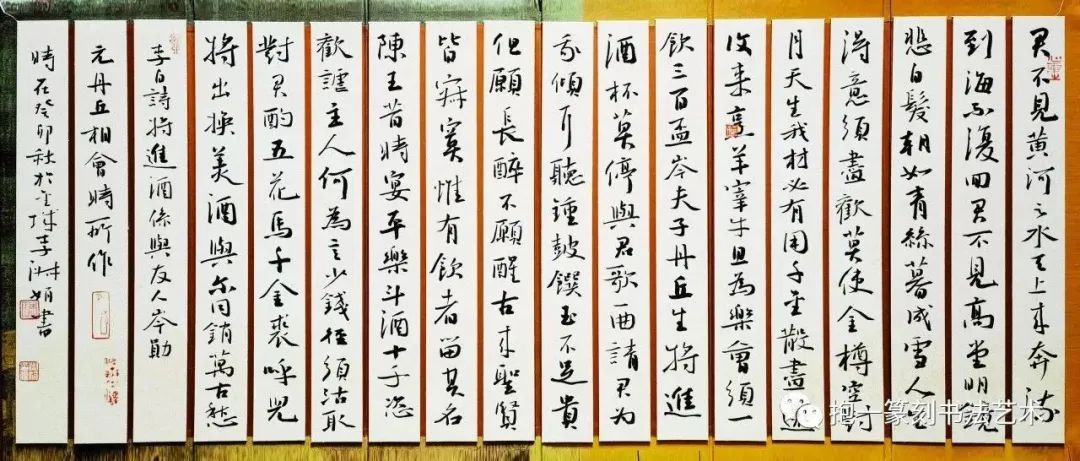 君不見黃河之水天上來奔流
到海不復回君不見高堂明鏡
悲白髮朝如青絲暮成雪人生
得意須盡歡莫使金樽空對
月天生我材必有用千金散盡還
復来烹羊宰牛且為樂會須一
飲三百盃岑夫子丹丘生將進
酒杯莫停與君歌一曲請君為
我傾耳聽鍾鼓饌玉不足貴
但願長醉不願醒古來聖賢
皆寂寞惟有飲者留其名
陳王昔時宴平樂斗酒十千恣
歡謔主人何為言少錢徑須沽取
對君酌五花馬千金裘呼兒
將出換美酒與爾同銷萬古愁
李白詩將進酒係與友人岑勛
元丹丘相會時所作
時在癸卯秋於金城李淑娟書
抱一篆刻书法艺术